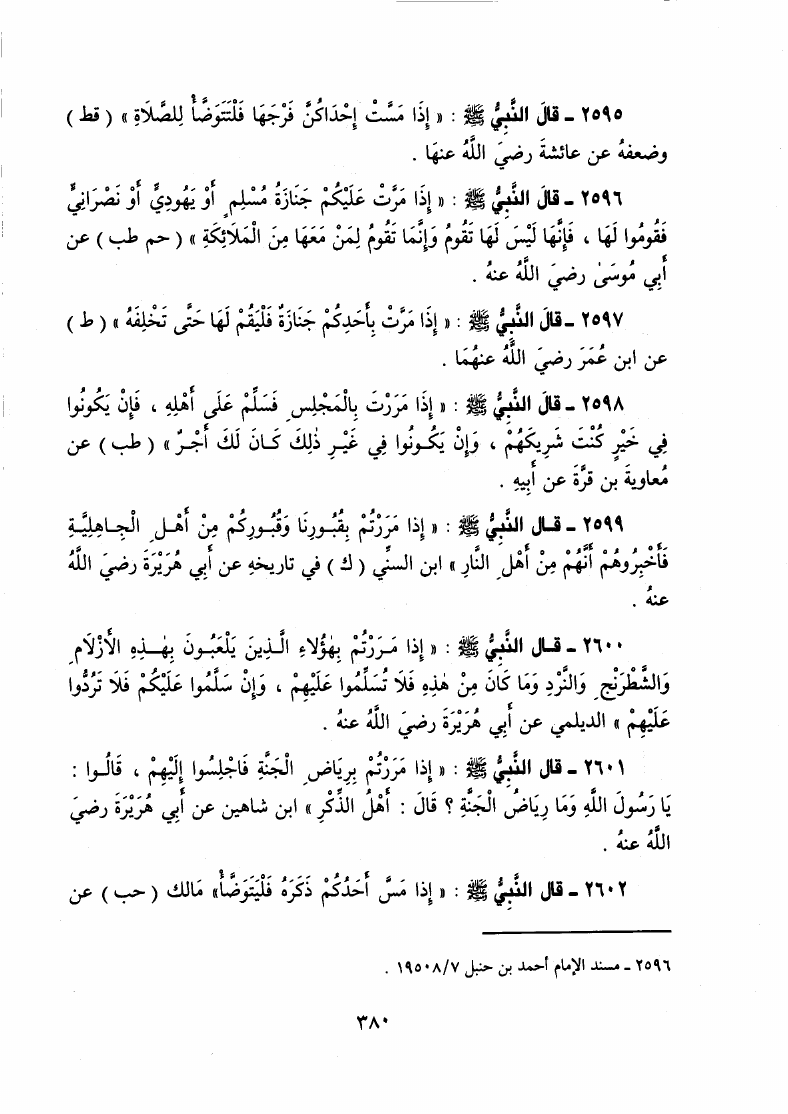 ٢٥٩٥ ـ قالَ النَّبِيُّ ﷺ : « إِذَا مَسَّتْ إِحْدَاكُنَّ فَرْجَهَا فَلْتَتَوَضَّأْ لِلصَّلَاةِ » ( قط )
وضعفهُ عن عائشةَ رضيَ اللَّهُ عنهَا .
٢٥٩٦ ـ قَالَ النَّبِيُّ ﷺ : « إِذَا مَرَّتْ عَلَيْكُمْ جَنَازَةُ مُسْلِمٍ أَوْ يَهُودِيٍّ أَوْ نَصْرَانِيٍّ
فَقُومُوا لَهَا ، فَإِنَّهَا لَيْسَ لَهَا تَقُومُ وَإِنَّمَا تَقُومُ لِمَنْ مَعَهَا مِنَ الْمَلَائِكَةِ » ( حم طب ) عن
أَبِي مُوسَىٰ رضيَ اللَّهُ عنهُ .
٢٥٩٧ ـ قالَ النَّبِيُّ ﷺ : « إِذَا مَرَّتْ بِأَحَدِكُمْ جَنَازَةٌ فَلْيَقُمْ لَهَا حَتَّى تَخْلِفَهُ » ( ط )
عن ابن عُمَرَ رضيَ اللَّهُ عنهُمَا .
٢٥٩٨ ـ قالَ النَّبِيُّ ﷺ : « إِذَا مَرَرْتَ بِالْمَجْلِسِ فَسَلِّمْ عَلَى أَهْلِهِ ، فَإِنْ يَكُونُوا
فِي خَيْرٍ كُنْتَ شَرِيكَهُمْ ، وَإِنْ يَكُونُوا فِي غَيْرِ ذٰلِكَ كَانَ لَكَ أَجْرٌ » ( طب ) عن
مُعاويةَ بن قرَّةَ عن أَبِيهِ .
٢٥٩٩ ـ قال النَّبِيُّ ﷺ : « إِذَا مَرَرْتُمْ بِقُبُورِنَا وَقُبُورِكُمْ مِنْ أَهْلِ الْجَاهِلِيَّةِ
فَأَخْبِرُوهُمْ أَنَّهُمْ مِنْ أَهْلِ النَّارِ » ابن السنِّي ( ك ) في تاريخهِ عن أَبِي هُرَيْرَةَ رضيَ اللَّهُ
عنهُ .
٢٦٠٠ ـ قال النَّبِيُّ ﷺ : « إِذَا مَرَرْتُمْ بِهٰؤُلَاءِ الَّذِينَ يَلْعَبُونَ بِهٰذِهِ الْأَزْلَامِ
وَالشَّطْرَنْجِ وَالنَّرْدِ وَمَا كَانَ مِنْ هٰذِهِ فَلَا تُسَلِّمُوا عَلَيْهِمْ ، وَإِنْ سَلَّمُوا عَلَيْكُمْ فَلَا تَرُدُّوا
عَلَيْهِمْ » الديلمي عن أَبِي هُرَيْرَةَ رضيَ اللَّهُ عنهُ .
٢٦٠١ ـ قال النَّبِيُّ ﷺ : « إِذَا مَرَرْتُمْ بِرِيَاضِ الْجَنَّةِ فَاجْلِسُوا إِلَيْهِمْ ، قَالُوا :
يَا رَسُولَ اللَّهِ وَمَا رِيَاضُ الْجَنَّةِ ؟ قَالَ : أَهْلُ الذِّكْرِ » ابن شاهين عن أَبِي هُرَيْرَةَ رضيَ
اللَّهُ عنهُ .
٢٦٠٢ ـ قال النَّبِيُّ ﷺ : « إِذَا مَسَّ أَحَدُكُمْ ذَكَرَهُ فَلْيَتَوَضَّأْ» مَالك ( حب ) عن
٢٥٩٦ ـ مسند الإمام أحمد بن حنبل ١٩٥٠٨/٧ .
٣٨٠